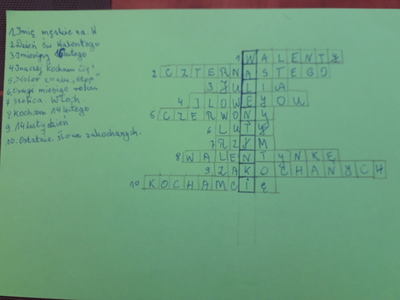 1 Imię męskie na W
2 Dzień św Walentego
3 Imieniny 16 lutego
4 Inaczej Kocham Cię"
5 Kolor znaku „stop"
6 Drugi miesiąc roku
7 Stolica Włoch
8 Kocham 14 lutego
9 14 luty dzień
10. Ostatnie słowa zakochanych.
1 WALENTY
2 CZTERNASTEGO
3 JULIA
4 ILOWEYOU
5 CZERWONY
6 LUTY
7 RZYM
8 WALENTYNKĘ
9 ZAKOCHANYCH
10 KOCHAMCIĘ